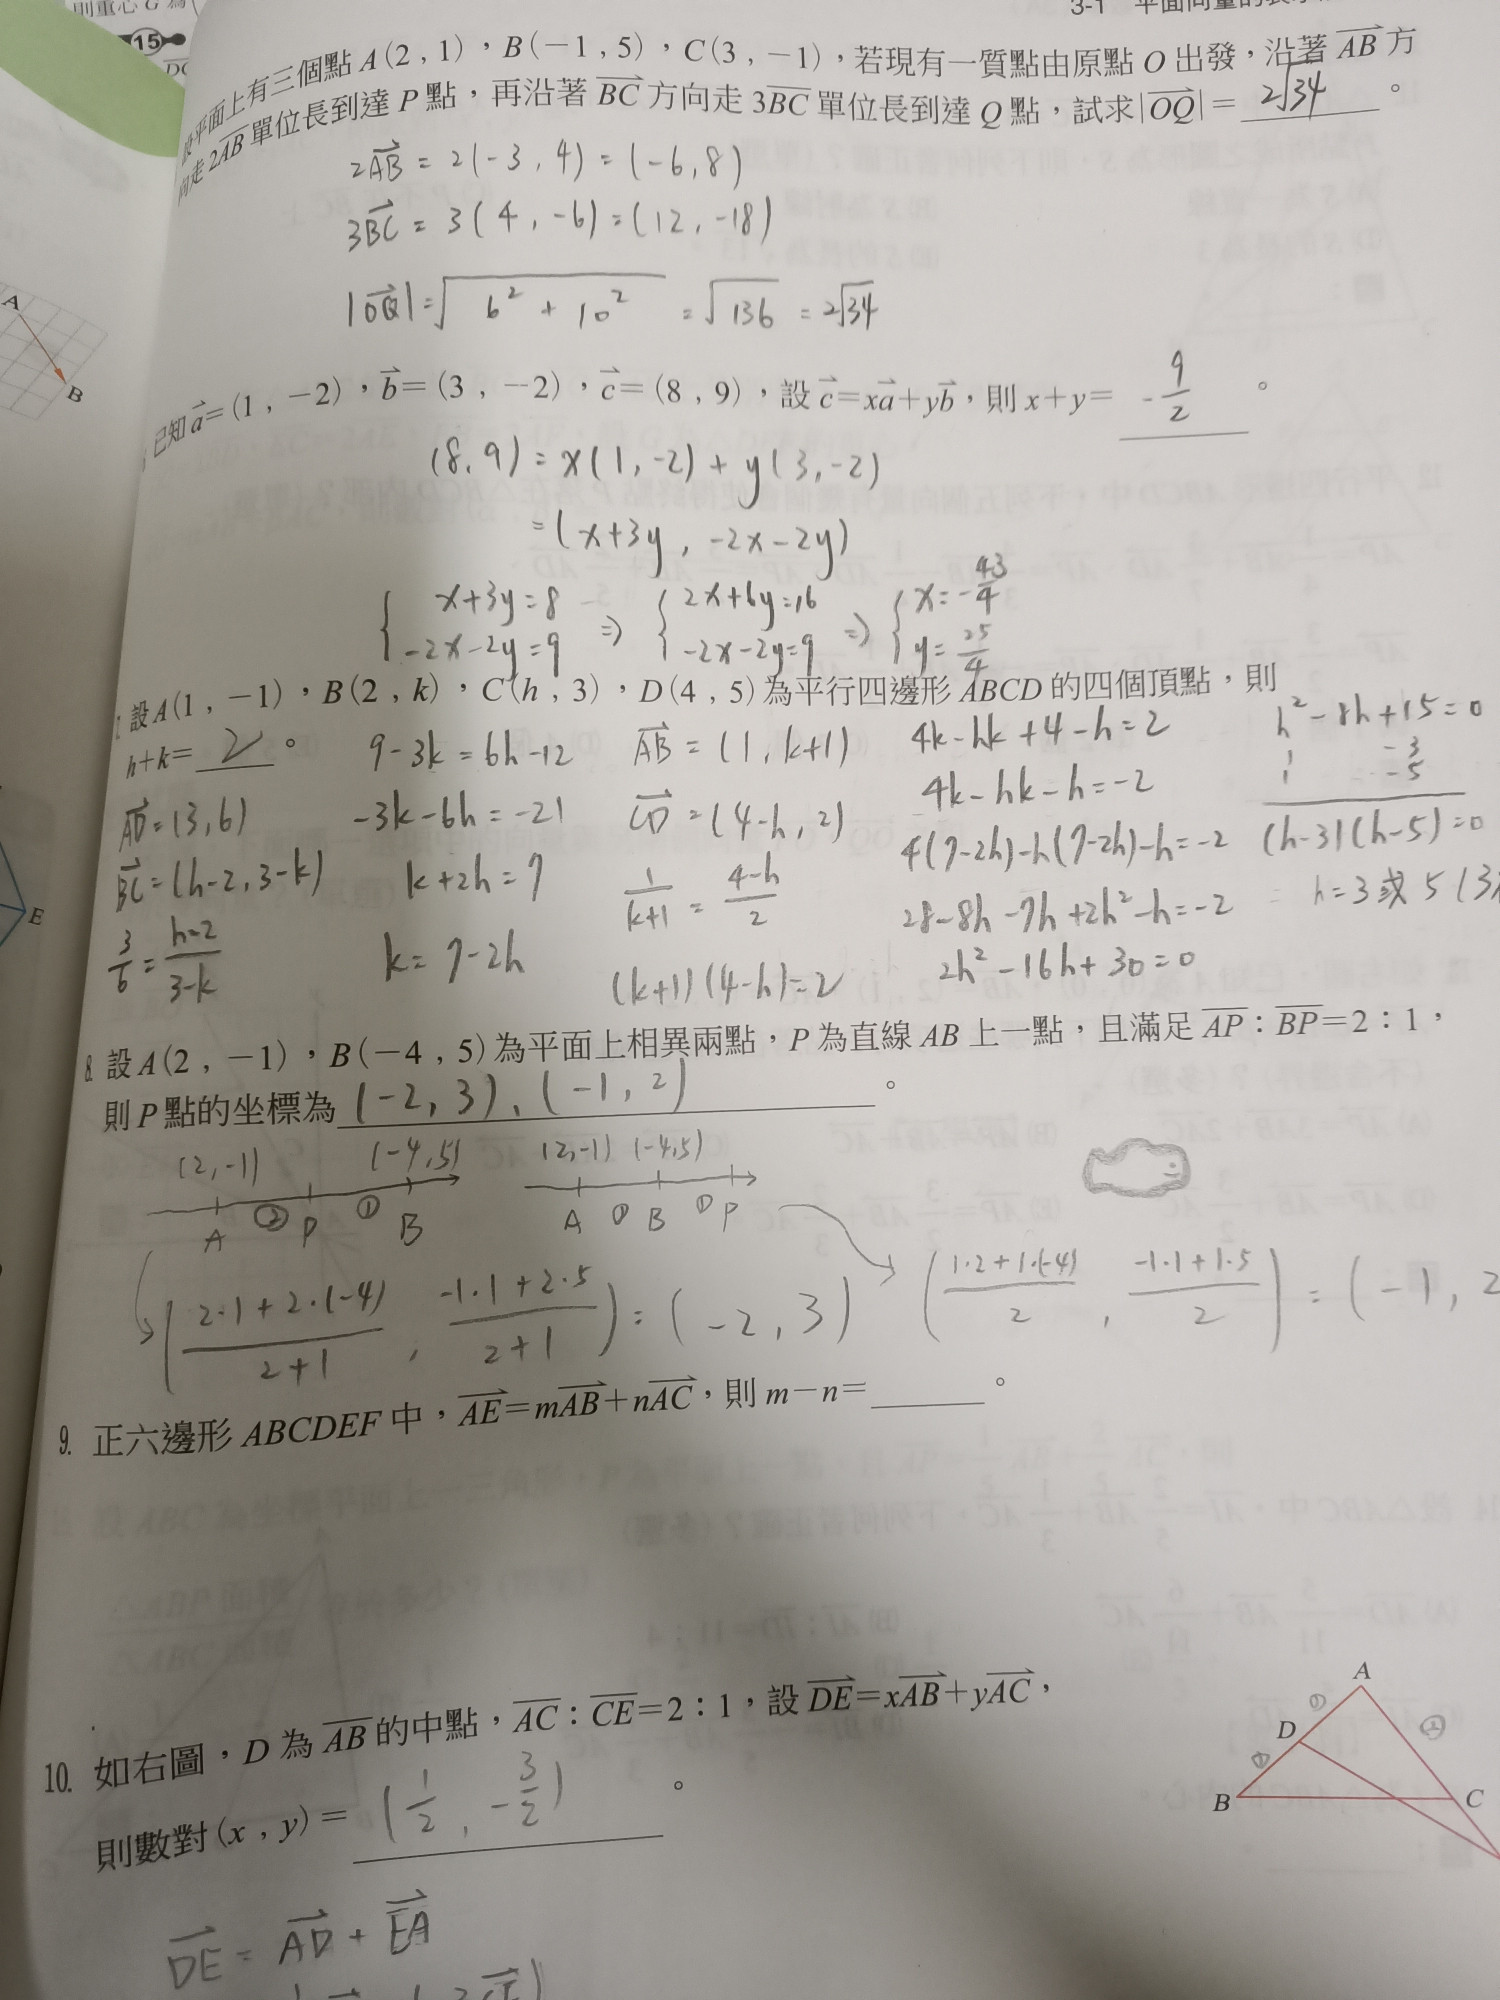 則重心 G 為
3-1 平面向量的表示
15
設平面上有三個點 A(2,1),B(−1,5),C(3,−1),若現有一質點由原點 O 出發,沿著 AB 方
向走 2AB 單位長到達 P 點,再沿著 BC 方向走 3BC 單位長到達 Q 點,試求|OQ|= 2√34 。
2AB = 2(-3, 4) = (-6, 8)
3BC = 3(4, -6) = (12, -18)
|OQ| = √6² + 10² = √136 = 2√34
A
B
已知 a=(1,−2),b=(3,−2),c=(8,9),設 c=xa+yb,則 x+y= -9/2 。
(8, 9) = x(1, -2) + y(3, -2)
= (x+3y, -2x-2y)
{ x+3y=8 -2x-2y=9 ⇒ { 2x+6y=16 -2x-2y=9 ⇒ { x=-43/4 y=25/4
設 A(1,−1),B(2,k),C(h,3),D(4,5)為平行四邊形 ABCD 的四個頂點,則
h+k= 2 。
AD=(3,6)
BC=(h-2, 3-k)
3/6 = h-2/3-k
9-3k=6h-12
-3k-6h=-21
k+2h=7
k=7-2h
AB = (1, k+1)
CD = (4-h, 2)
1/k+1 = 4-h/2
(k+1)(4-h)=2
4k-hk+4-h=2
4k-hk-h=-2
4(7-2h)-h(7-2h)-h=-2
28-8h-7h+2h²-h=-2
2h²-16h+30=0
h²-8h+15=0
1 -3
1 -5
(h-3)(h-5)=0
h=3或5(3
E
8. 設 A(2,−1),B(−4,5)為平面上相異兩點,P 為直線 AB 上一點,且滿足 AP:BP=2:1,
則 P 點的坐標為 (-2, 3)、(-1, 2) 。
(2,-1) (-4,5) (2,-1) (-4,5)
A ② P ① B A ① B ① P
(2·1+2·(-4)/2+1, -1·1+2·5/2+1) = (-2, 3) (1·2+1·(-4)/2, -1·1+1·5/2) = (-1, 2
9. 正六邊形 ABCDEF 中,AE=mAB+nAC,則 m−n= 。
10. 如右圖,D 為 AB 的中點,AC:CE=2:1,設 DE=xAB+yAC,
則數對(x,y)= (1/2, -3/2) 。
A
① ②
D
①
B C
DE = AD + EA